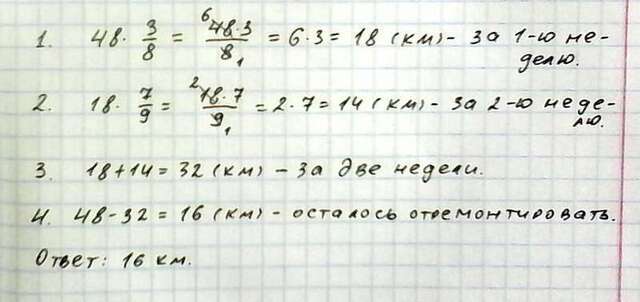 1. 48 · 3/8 = 48·3/8 = 6·3 = 18 (км) – за 1-ю не-
делю.
2. 18 · 7/9 = 18·7/9 = 2·7 = 14 (км) – за 2-ю неде-
лю.
3. 18+14 = 32 (км) – за две недели.
4. 48-32 = 16 (км) – осталось отремонтировать.
Ответ: 16 км.